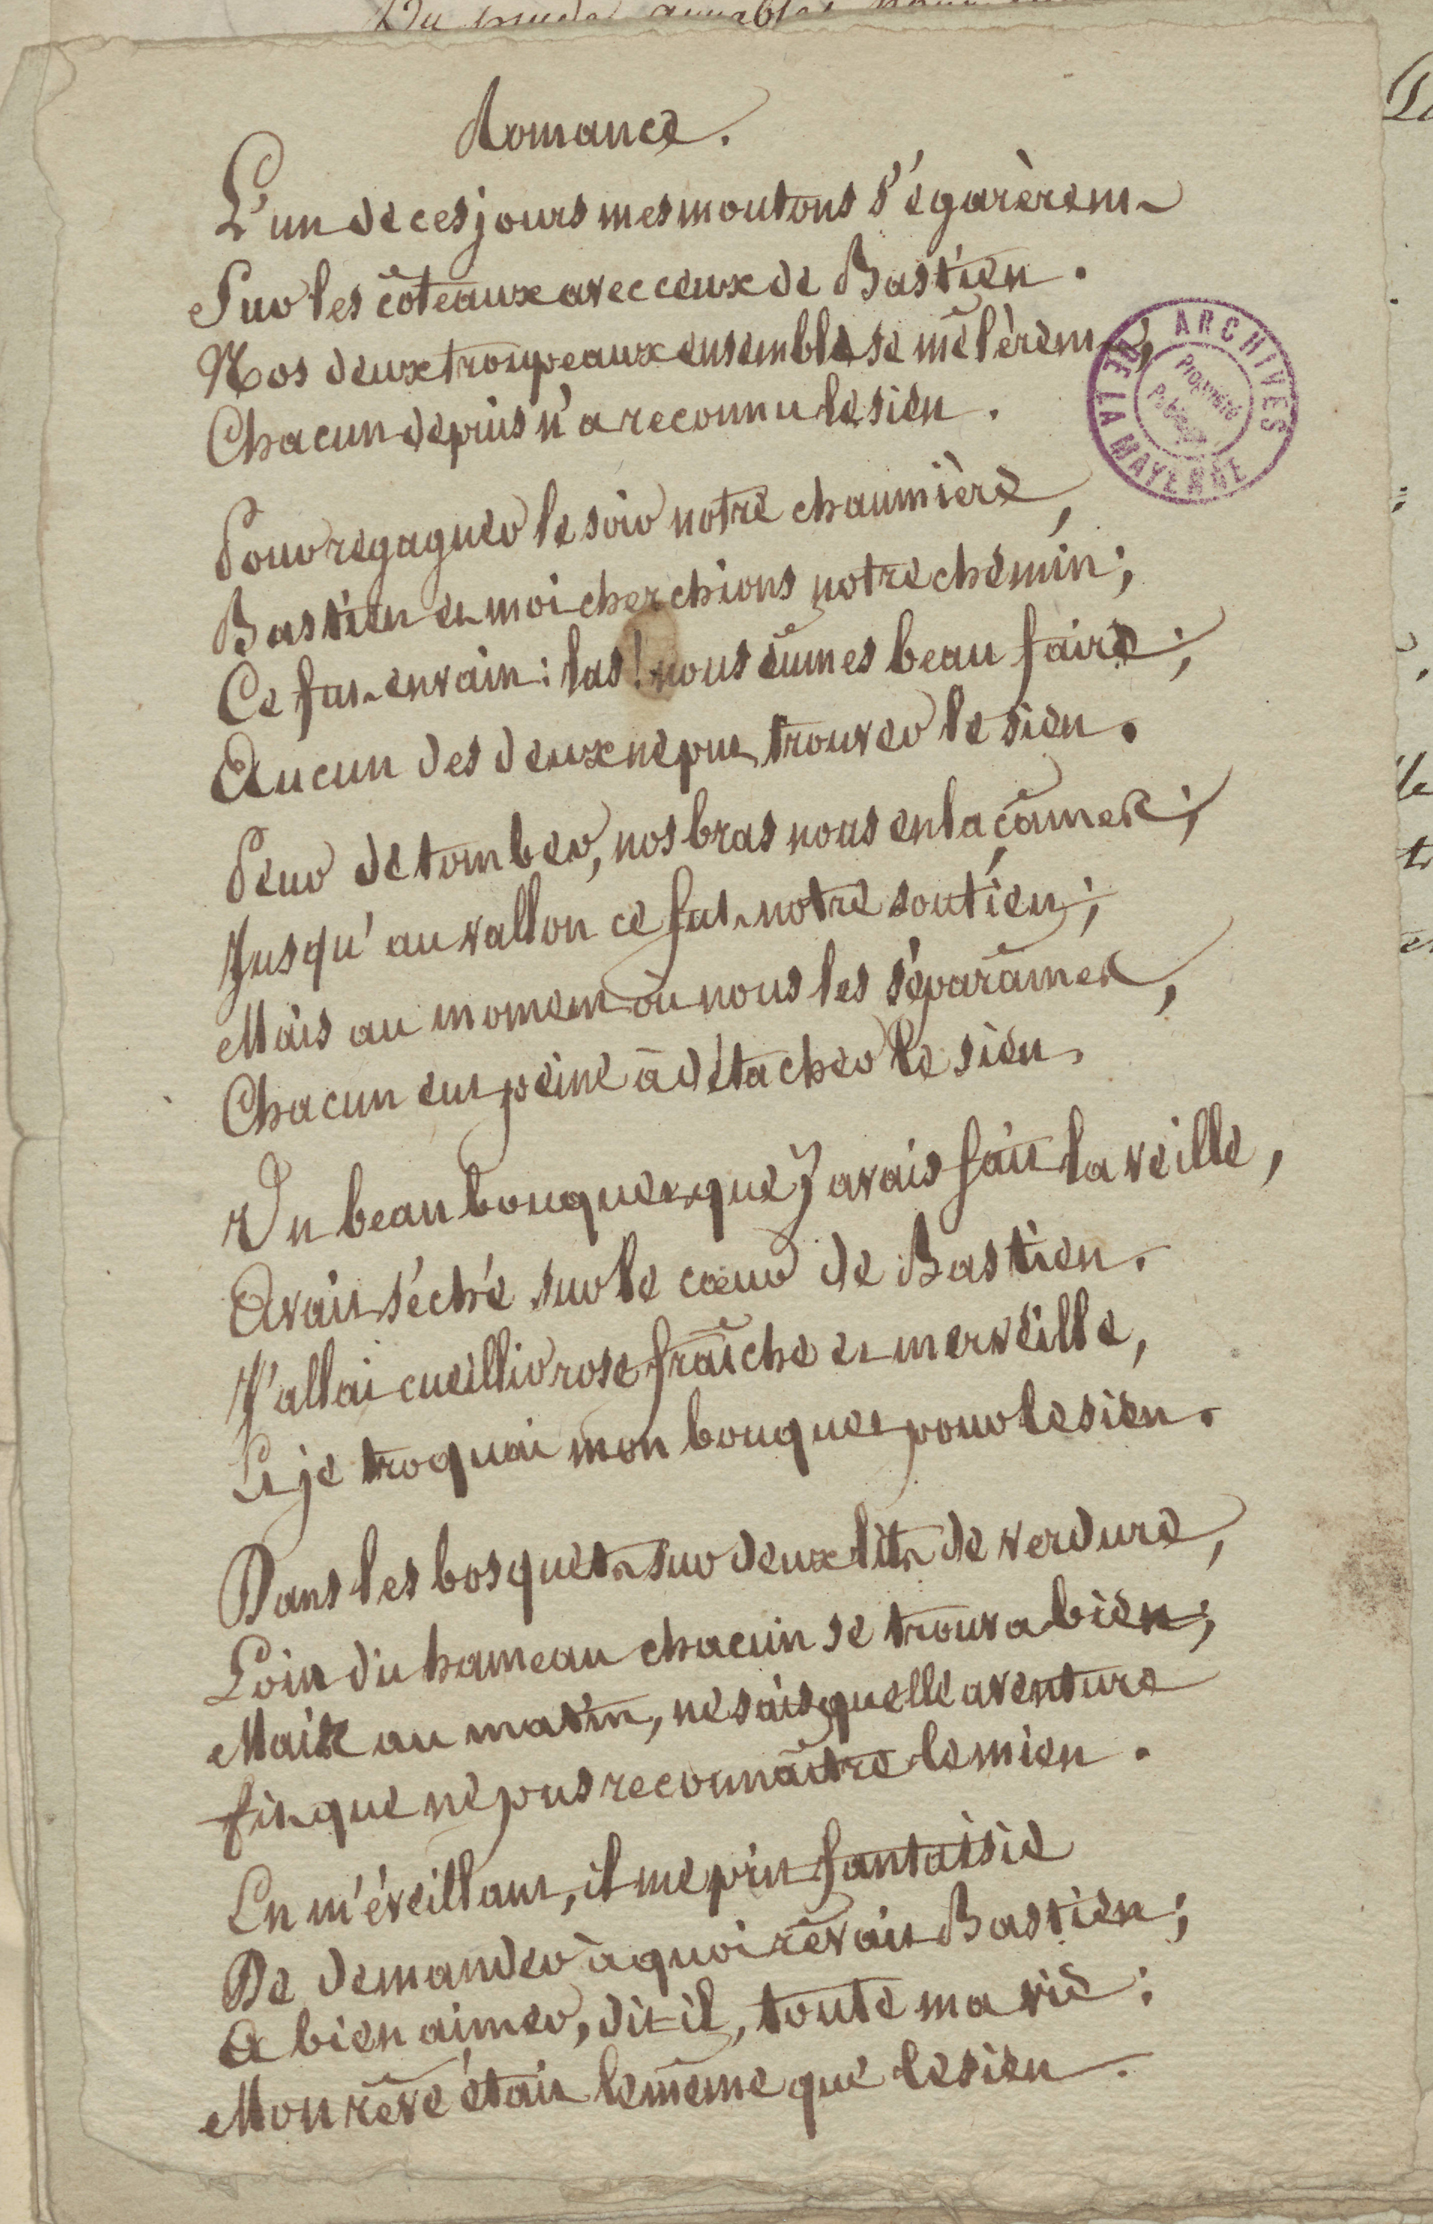 Romance.
L'un de ces jours mes moutons s'égarèrent
Sur les côteaux avec ceux de Bastien.
Nos deux troupeaux ensemble se mêlèrent;
Chacun depuis n'a reconnu le sien.
Pour regagner le soir notre chaumière,
Bastien et moi cherchions notre chemin;
Ce fut envain: las! nous eûmes beau faire;
Aucun des deux ne put trouver le sien.
Peur de tomber, nos bras nous enlaçâmes;
Jusqu'au vallon ce fut notre soutien;
Mais au moment où nous les séparâmes,
Chacun eut peine à détacher le sien.
Un beau bouquet que j'avais fait la veille,
Avait séché sur le cœur de Bastien.
J'allai cueillir rose fraîche et merveille,
Et je troquai mon bouquet pour le sien.
Dans les bosquets sur deux lits de verdure,
Loin du hameau chacun se trouva bien;
Mais au matin, ne sais quelle aventure
fit que ne pus reconnaître le mien.
En m'éveillant, il me prit fantaisie
De demander à quoi rêvait Bastien;
A bien aimer, dit-il, toute ma vie:
Mon rêve était le même que le sien.
ARCHIVES DE LA MAYENNE
Propriété Publique